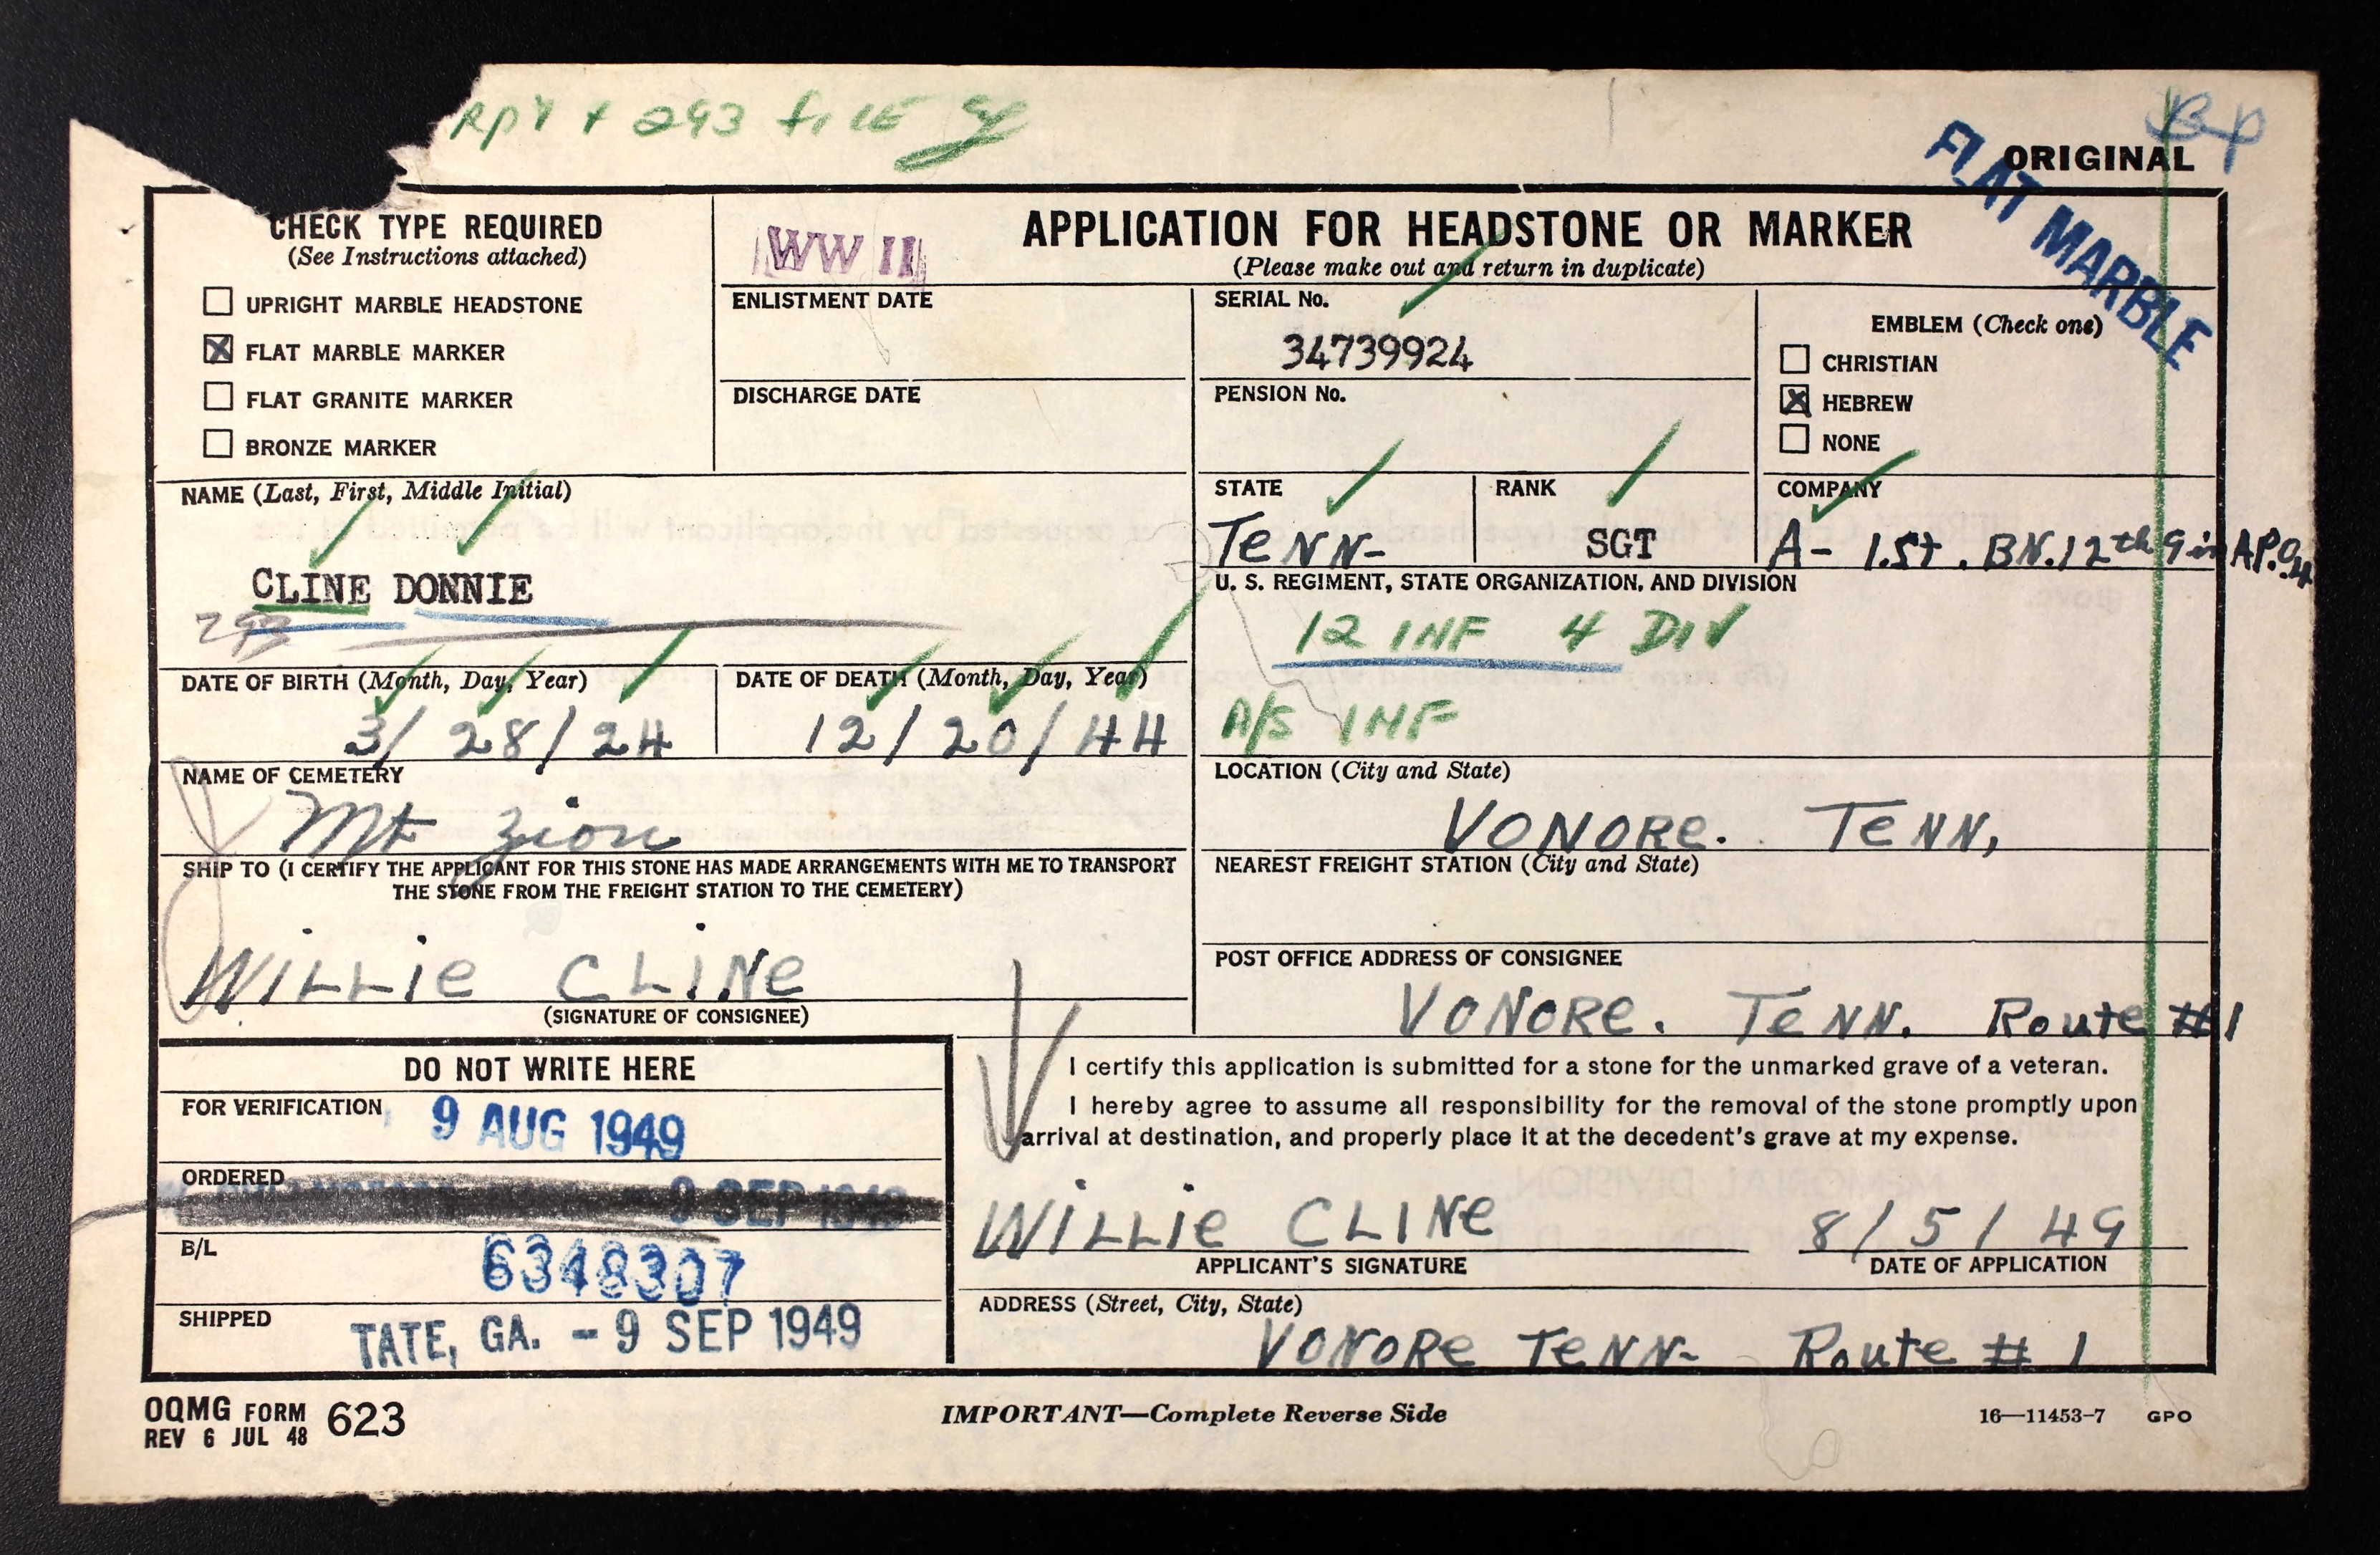 RPY + 293 FILE
Bp
ORIGINAL
FLAT MARBLE
CHECK TYPE REQUIRED
(See Instructions attached)
☐ UPRIGHT MARBLE HEADSTONE
☒ FLAT MARBLE MARKER
☐ FLAT GRANITE MARKER
☐ BRONZE MARKER
WW II
APPLICATION FOR HEADSTONE OR MARKER
(Please make out and return in duplicate)
ENLISTMENT DATE
DISCHARGE DATE
SERIAL No.
34739924
PENSION No.
EMBLEM (Check one)
☐ CHRISTIAN
☒ HEBREW
☐ NONE
NAME (Last, First, Middle Initial)
CLINE DONNIE
293
STATE
TeNN-
RANK
SGT
COMPANY
A- 1.St. BN. 12th 9 in A.P.O. 4
U. S. REGIMENT, STATE ORGANIZATION, AND DIVISION
12 INF 4 DIV
A/S INF
DATE OF BIRTH (Month, Day, Year)
3/28/24
DATE OF DEATH (Month, Day, Year)
12/20/44
NAME OF CEMETERY
Mt Zion
LOCATION (City and State)
VONORe. TeNN,
SHIP TO (I CERTIFY THE APPLICANT FOR THIS STONE HAS MADE ARRANGEMENTS WITH ME TO TRANSPORT
THE STONE FROM THE FREIGHT STATION TO THE CEMETERY)
WiLLie CLiNe
(SIGNATURE OF CONSIGNEE)
NEAREST FREIGHT STATION (City and State)
POST OFFICE ADDRESS OF CONSIGNEE
VONORe. TeNN. Route #1
DO NOT WRITE HERE
FOR VERIFICATION
9 AUG 1949
ORDERED
9 SEP 1949
B/L
6348307
SHIPPED
TATE, GA. - 9 SEP 1949
I certify this application is submitted for a stone for the unmarked grave of a veteran.
I hereby agree to assume all responsibility for the removal of the stone promptly upon
arrival at destination, and properly place it at the decedent's grave at my expense.
WiLLie CLINe
8/5/49
APPLICANT'S SIGNATURE
DATE OF APPLICATION
ADDRESS (Street, City, State)
VONORe TeNN- Route # 1
OQMG FORM 623
REV 6 JUL 48
IMPORTANT—Complete Reverse Side
16—11453-7 GPO